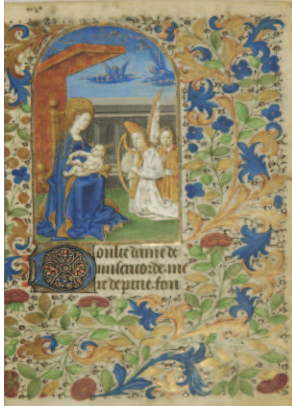 Doulce dame de
misericorde me
re de pitie. fon